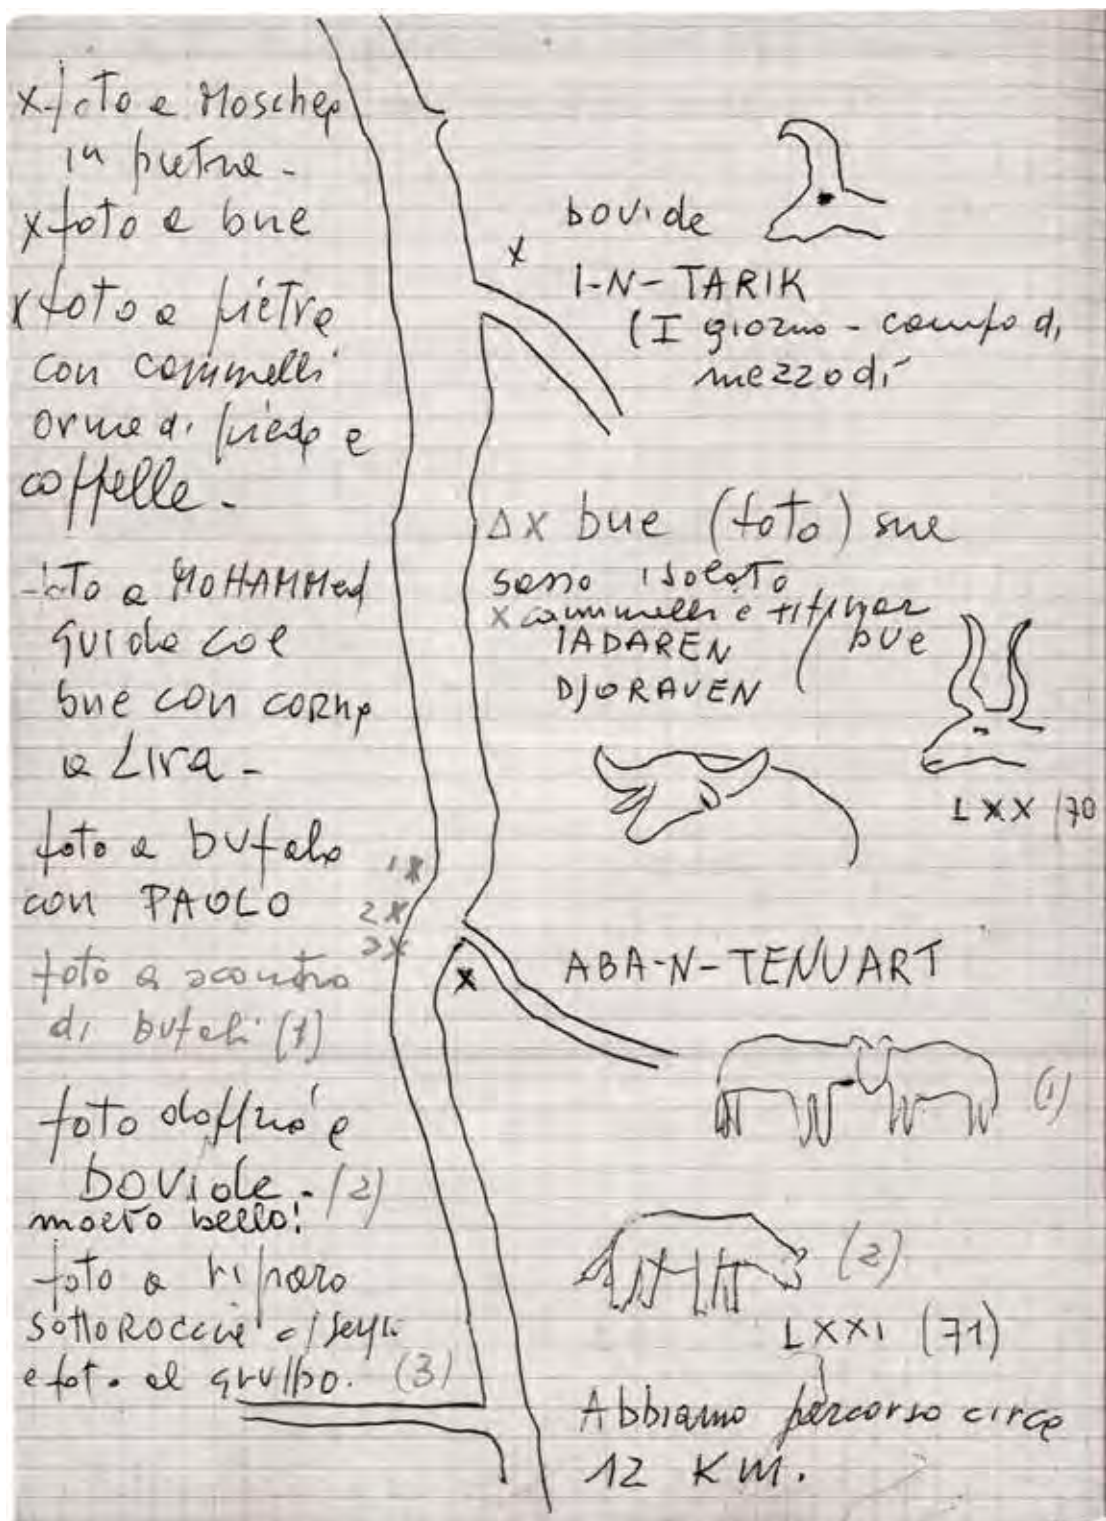 x foto a Moschea
in pietra -
x foto a bue
x foto a pietra
con cammelli
orme di piede e
coppelle -
foto a MOHAMMed
guida col
bue con corna
a Lira -
foto a bufalo
con PAOLO
foto a scontro
di bufali (1)
foto doppia e
BOVide - (2)
molto bello!
foto a riparo
sottoroccia
e foto al gruppo. (3)
1x
2x
3x
x
bovide
I-N-TARIK
(I giorno - campo di
mezzodì
Δx bue (foto) sul
sasso isolato
x cammelli e tifinar
IADAREN
DJORAVEN
bue
LXX /70
x
ABA-N-TENUART
(1)
(2)
LXXI (71)
Abbiamo percorso circa
12 KM.